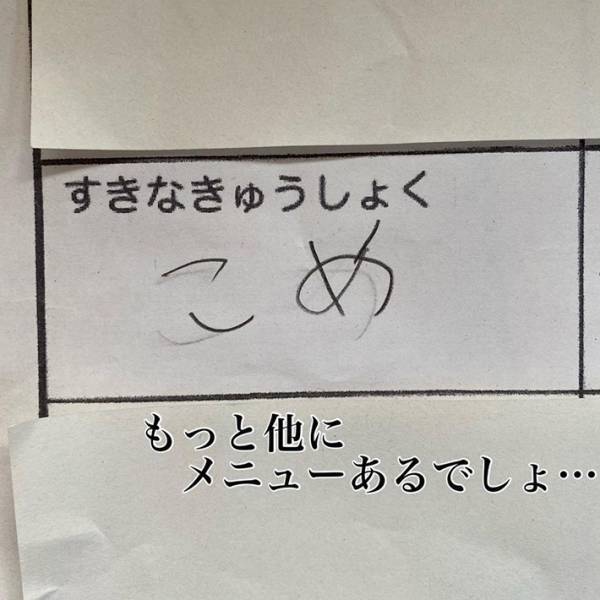 すきなきゅうしょく
こめ
もっと他に
メニューあるでしょ…